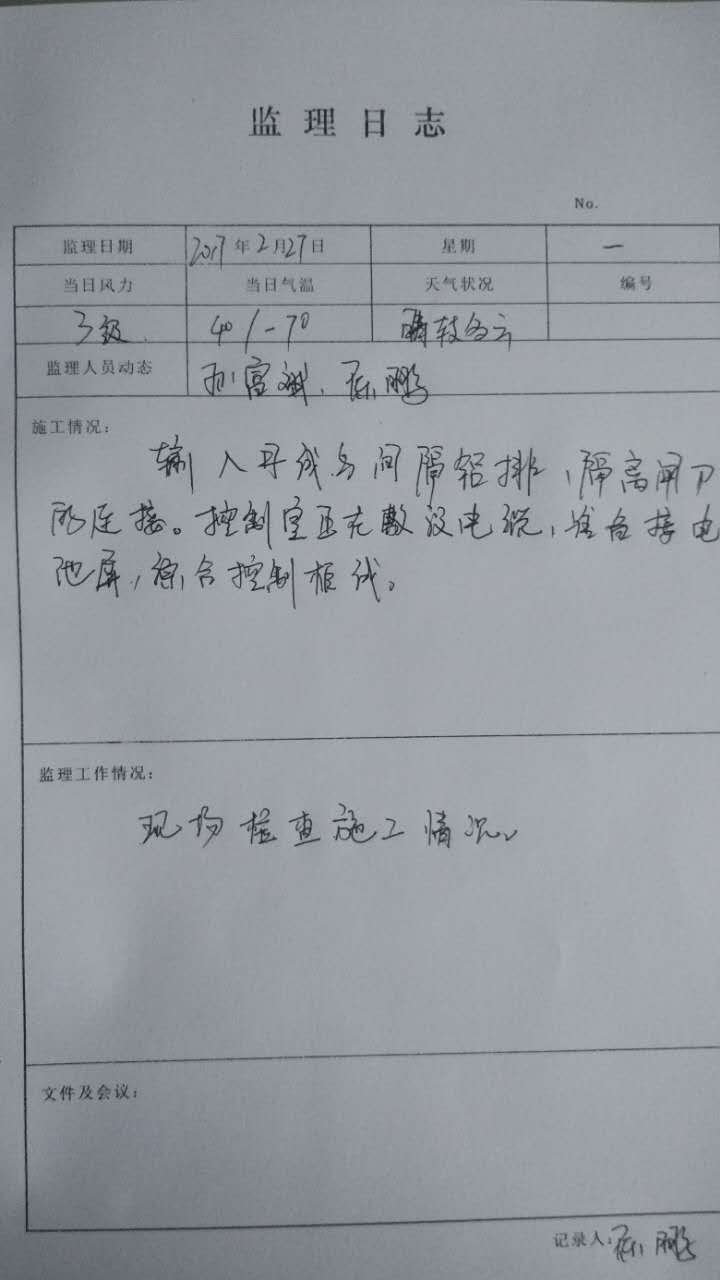 监理日志
No.
监理日期 2017年2月27日 星期 一
当日风力 当日气温 天气状况 编号
3级 4°/-7° 晴转多云
监理人员动态 孙富斌、陈鹏
施工情况：
输入母线与间隔铝排、隔离闸刀
的连接。控制室正在敷设电缆、蓄电
池屏、综合控制柜线。
监理工作情况：
现场检查施工情况。
文件及会议：
记录人：陈鹏